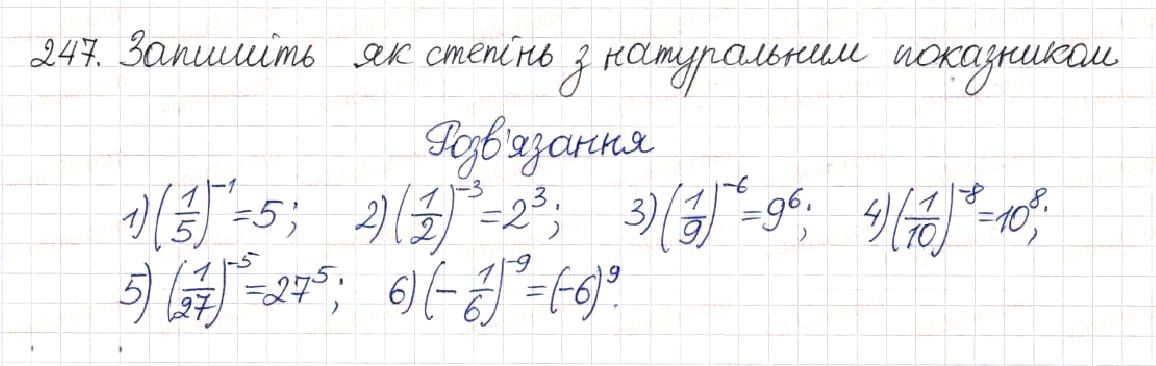 247. Запишіть як степінь з натуральним показником
Розв'язання
1) (1/5)⁻¹ = 5; 2) (1/2)⁻³ = 2³; 3) (1/9)⁻⁶ = 9⁶; 4) (1/10)⁻⁸ = 10⁸;
5) (1/27)⁻⁵ = 27⁵; 6) (-1/6)⁻⁹ = (-6)⁹.